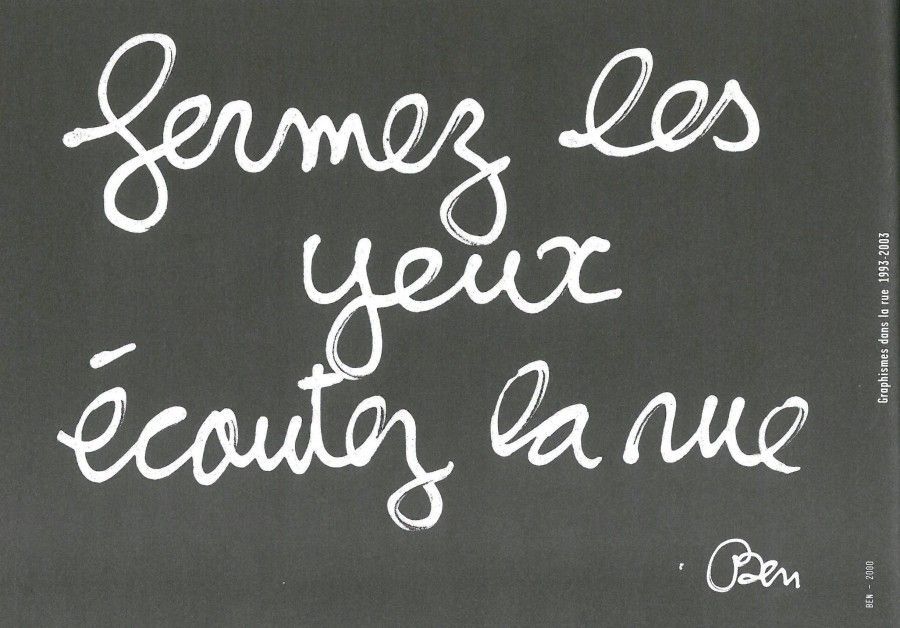 fermez les
yeux
écoutez la rue
Ben
Graphismes dans la rue 1993-2003
BEN - 2000